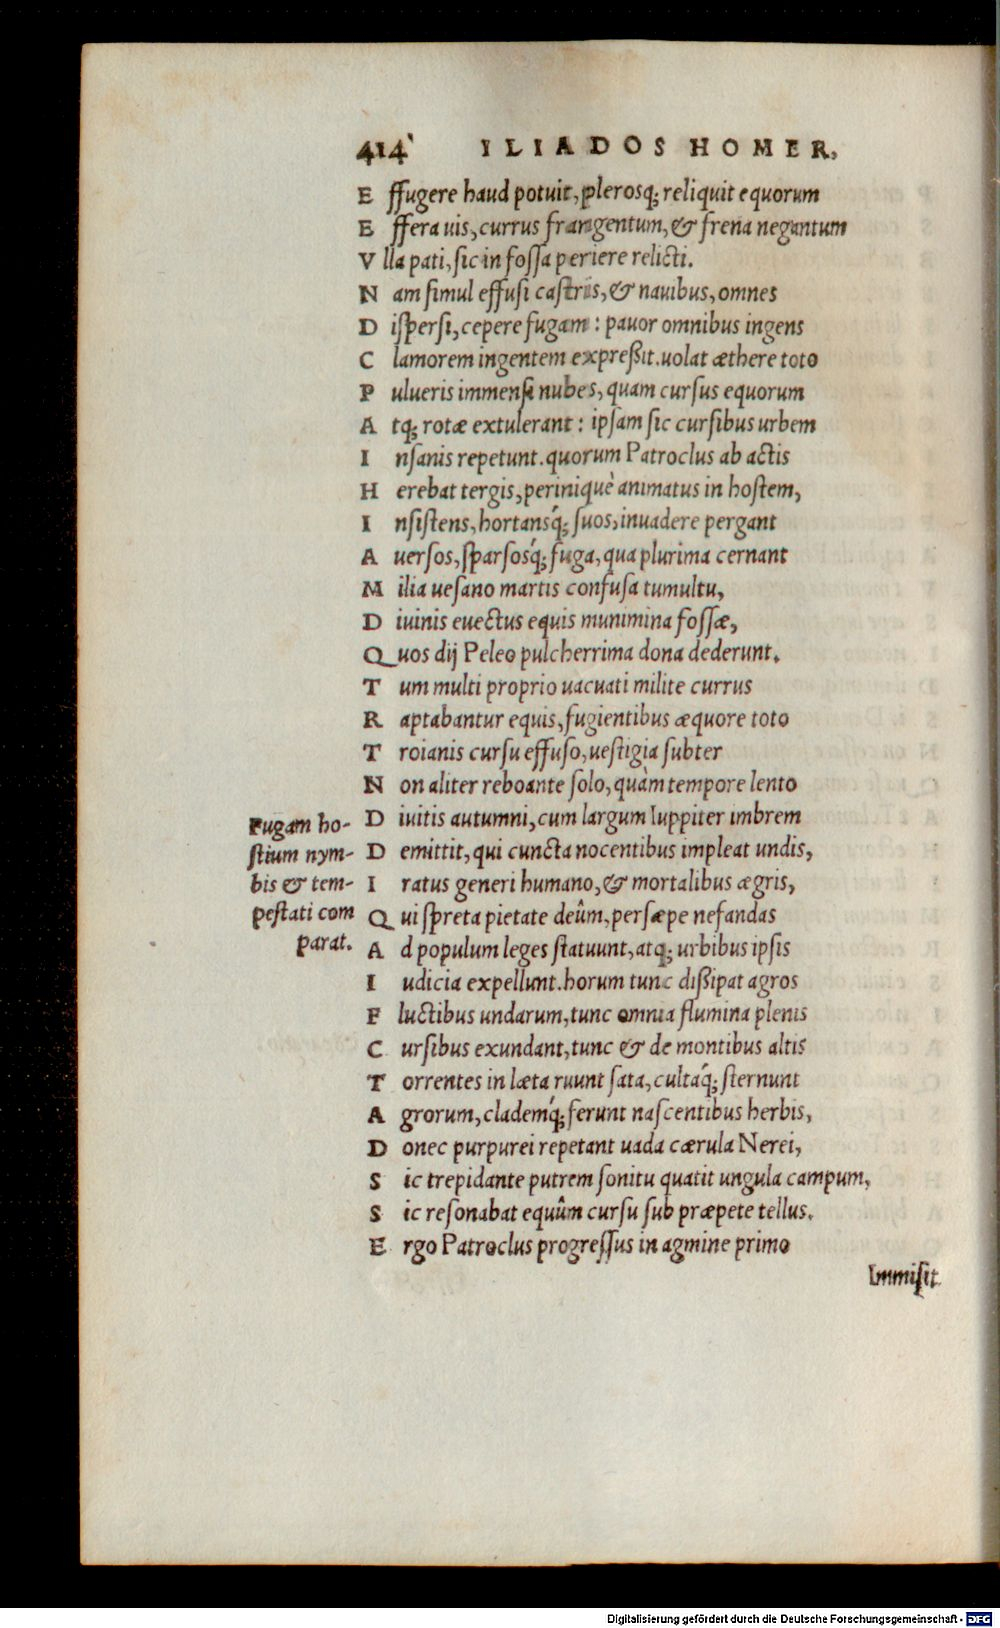 414 ILIADOS HOMER,
Effugere haud potuit, plerosq; reliquit equorum
Effera uis, currus frangentum, & frena negantum
Vlla pati, sic in fossa periere relicti.
Nam simul effusi castris, & nauibus, omnes
Dispersi, cepere fugam : pauor omnibus ingens
Clamorem ingentem expreßit. uolat æthere toto
Pulueris immensi nubes, quam cursus equorum
Atq; rotæ extulerant : ipsam sic cursibus urbem
Insanis repetunt. quorum Patroclus ab actis
Herebat tergis, periniquè animatus in hostem,
Insistens, hortansq́; suos, inuadere pergant
Auersos, sparsosq́; fuga, qua plurima cernant
Milia uesano martis confusa tumultu,
Diuinis euectus equis munimina fossæ,
Quos dij Peleo pulcherrima dona dederunt.
Tum multi proprio uacuati milite currus
Raptabantur equis, fugientibus æquore toto
Troianis cursu effuso, uestigia subter
Non aliter reboante solo, quàm tempore lento
Diuitis autumni, cum largum Iuppiter imbrem
Demittit, qui cuncta nocentibus impleat undis,
Iratus generi humano, & mortalibus ægris,
Qui spreta pietate deûm, persæpe nefandas
Ad populum leges statuunt, atq; urbibus ipsis
Iudicia expellunt. horum tunc dißipat agros
Fluctibus undarum, tunc omnia flumina plenis
Cursibus exundant, tunc & de montibus altis
Torrentes in læta ruunt sata, cultaq́; sternunt
Agrorum, clademq́; ferunt nascentibus herbis,
Donec purpurei repetant uada cærula Nerei,
Sic trepidante putrem sonitu quatit ungula campum,
Sic resonabat equûm cursu sub præpete tellus.
Ergo Patroclus progressus in agmine primo
Immisit
Fugam ho-
stium nym-
bis & tem-
pestati com
parat.
Digitalisierung gefördert durch die Deutsche Forschungsgemeinschaft - DFG